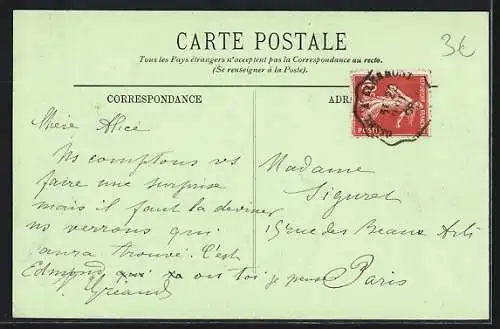 3€
CARTE POSTALE
Tous les Pays étrangers n'acceptent pas la Correspondance au recto.
(Se renseigner à la Poste).
CORRESPONDANCE
ADR
POSTES
Chère Alice
Ns comptons vs
faire une surprise
mais il faut la deviner
ns verrons qui
aura trouvé. C'est
Edmond ou toi je pense
Madame
Siguret
15 rue des Beaux Arts
Paris